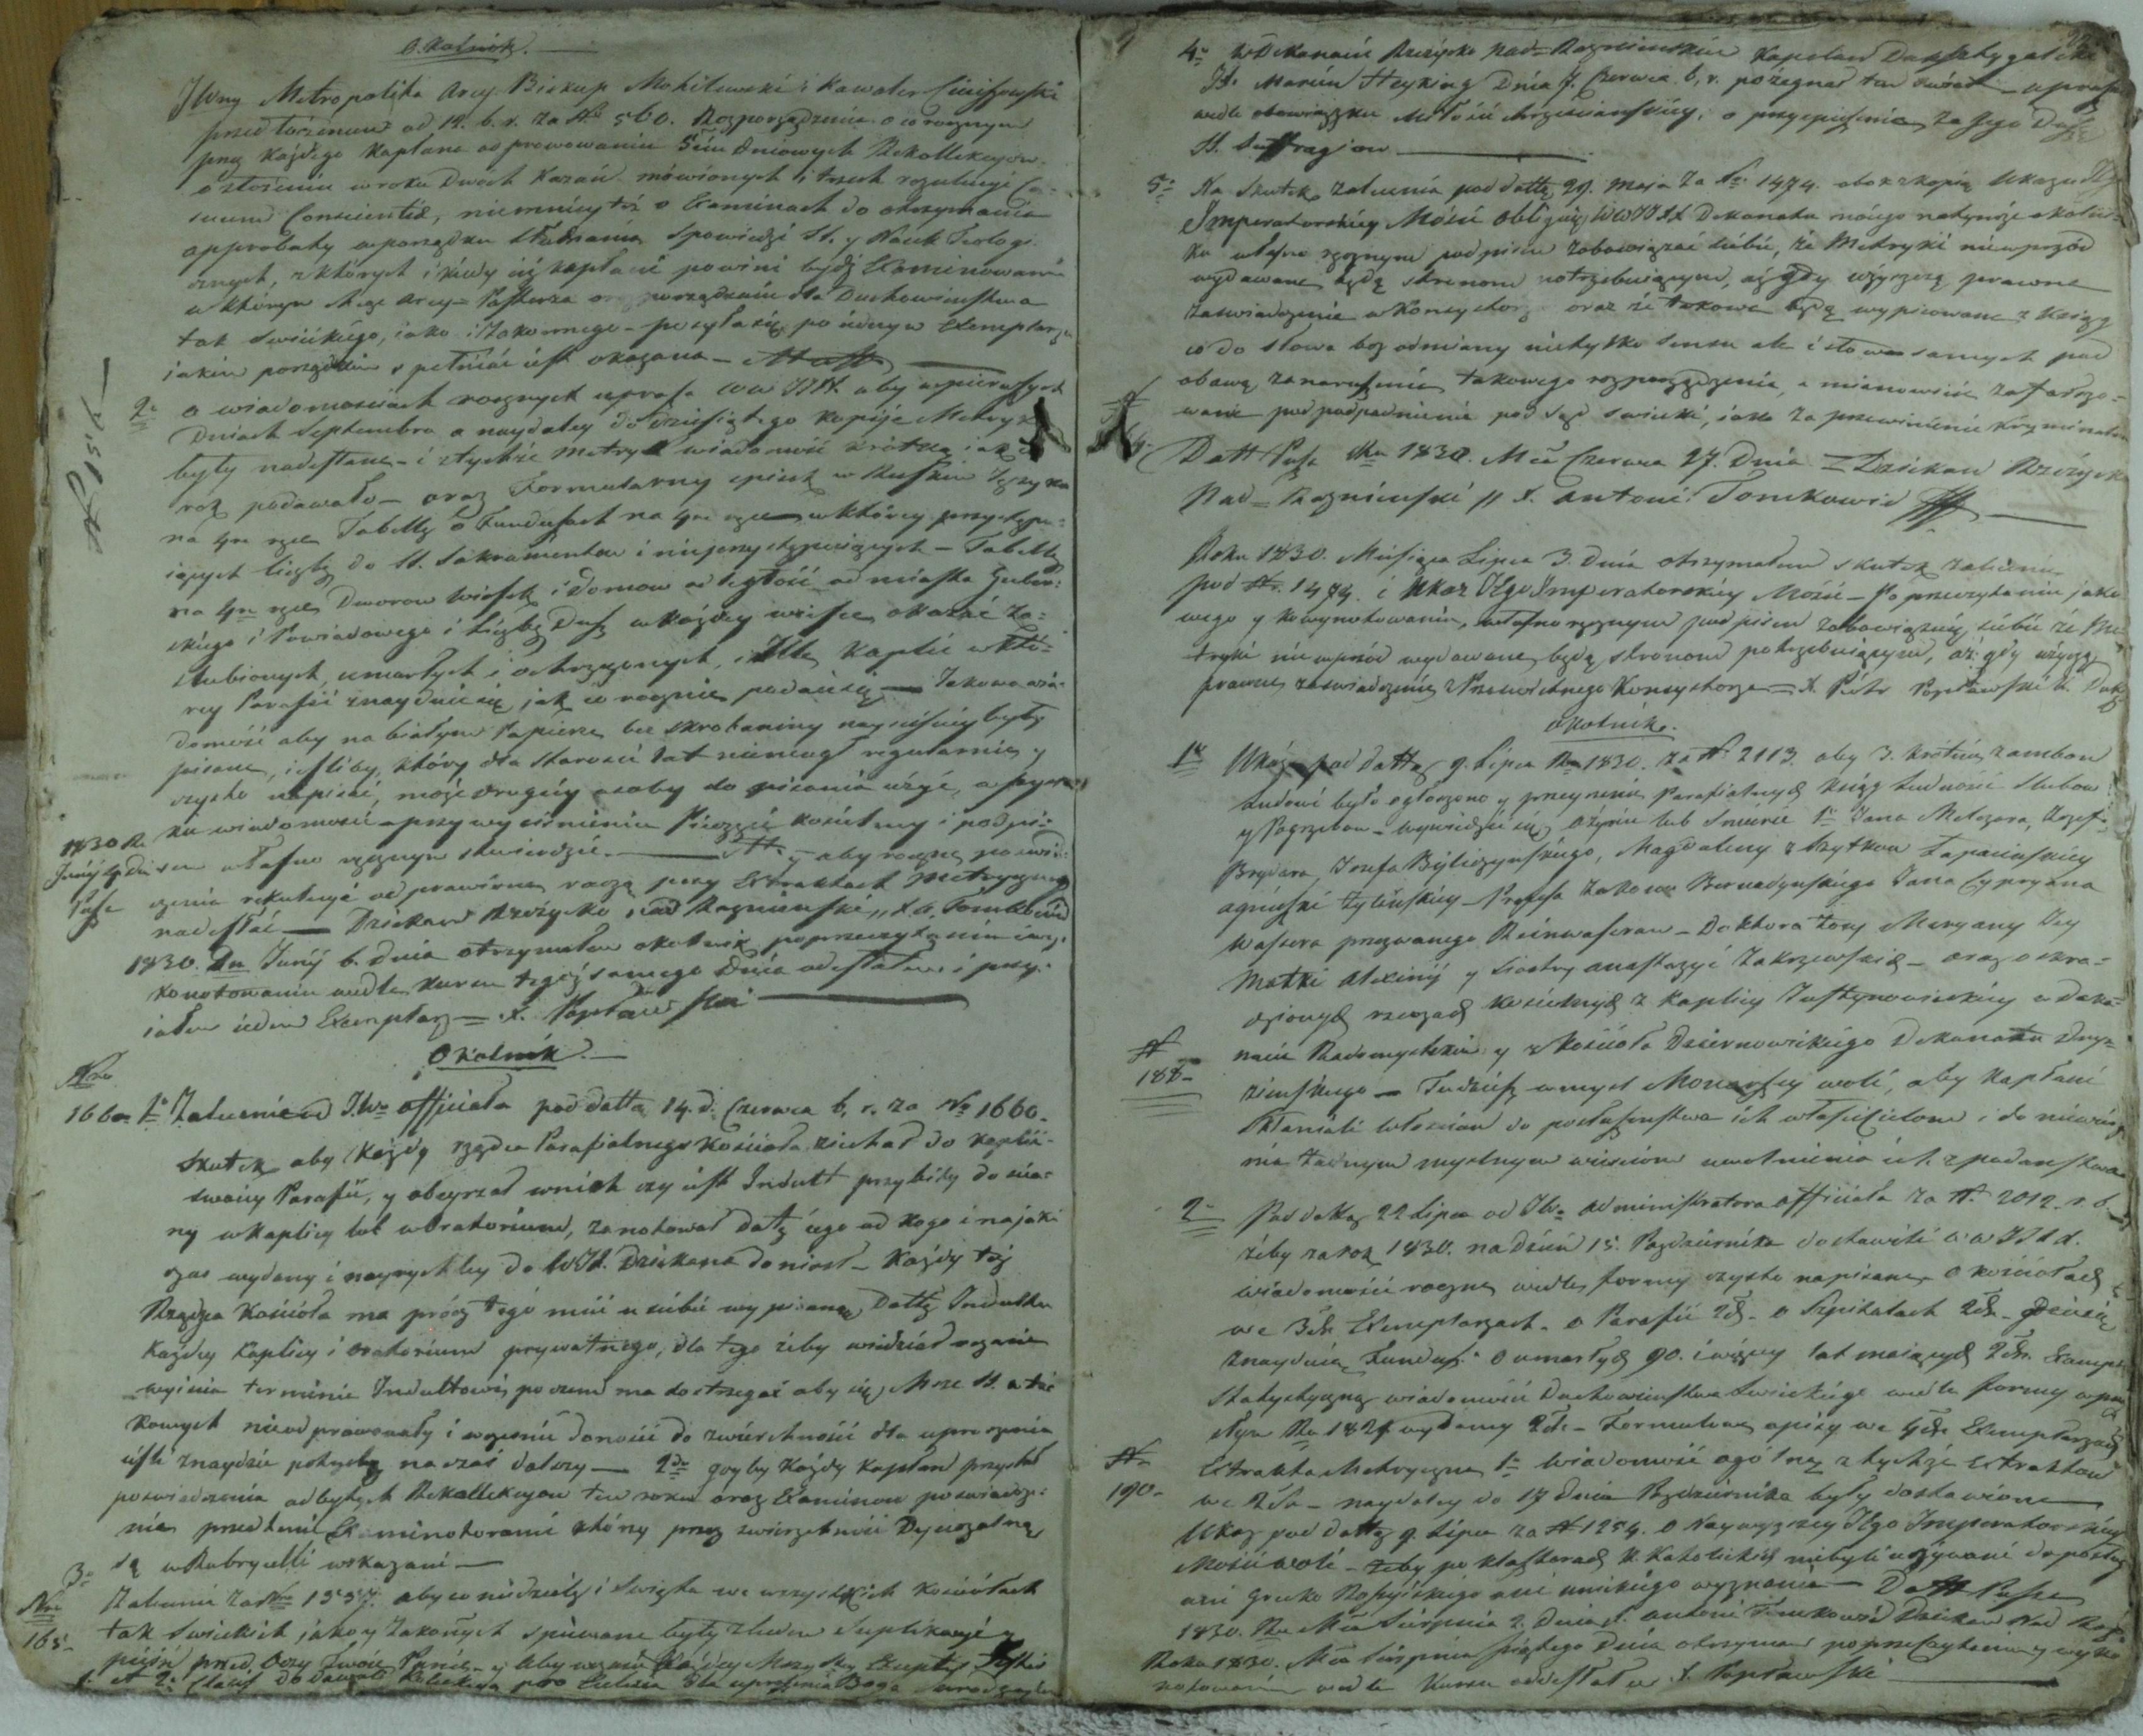 Okolnik.
JWny Metropolita Arcy Biskup Mohilewski i Kawaler Cieciszowski
przed łożeniem od 12. b. r. za N. 560. Rozporządzenie o corocznym
przez każdego Kapłana odprawowaniu 5ciu dniowych Rekollekcyow
o złożeniu w roku dwóch Kazań mówionych i trzech rezolucyi Ca-
suum Conscientiæ, niemniey też o Examinach do otrzymania
approbaty w porządku słuchania Spowiedzi St. y Nauk Teologi-
cznych, z których i kiedy się kapłani powinni bydź Examinowani
w którym Arcy-Pasterza rozporządzenie dla Duchowieństwa
tak Swieckiego, iako i Zakonnego - posyła się po iednym Exemplarzu
iakim porządkiem spełniać iest okazana
2° O wiadomościach rocznych uprasza WW JXX. aby w pierwszych
dniach Septembra a naydaley do dziesiątego Kopije Metryk
były nadesłane - i z tychże Metryk wiadomość krótka iak co
rok podawało - oraz Formularny spisek w Ruskim Języku
na 4m rzee Tabellę o Funduszach na 4m rzee w którey przystępu-
iących liczbę do St. Sakramentow i nieprzystępuiących - Tabellę
na 4m rzee Dworow Wiosek i Domow odległość od miasta Guber-
skiego i Powiatowego i liczbę Dusz w każdey wiosce okazać za-
slubionych, umarłych i ochrzczonych, i Ile Kaplic w któ-
rey Parafii znayduie się jak co rocznie podaie się - Takowa wia-
domość aby na białym Papierze bez skrobaniny nayczyściey były
pisane, iesliby który dla starości lat niemogł regularnie y
czysto napisać, może drugiey osoby do pisania użyć, a
ku wiadomość - przy wyciśnieniu Pieczęci Kościelney i podpi-
1830 R. sem własno ręcznym stwierdzić. aby roczne poswia-
czenia rekolekcyi odprawione raczą przy Extraktach Metrycznych
nadesłać - Dziekan Rzeżycki nad Rozmienski X. A. Tomkowid
1830. Ru Junij 6. dnia otrzymałem okolnik po przeczytaniu i wy-
konotowaniu wedle kursu tegoż samego Dnia odesłałem i przy-
iałem ieden Exemplarz = X. Popławski
Okolnik.
Nro
1660. 1° Zalecenie od J.W° Officiała pod datta 14. d. Czerwca b. r. za No 1660.
skutek aby każdy rządca Parafialnego Kościoła ziechał do Kaplic
swoiey Parafii, y obeyrzał w nich czy iest Indult przybity do scia-
ny w Kaplicy lub w Oratorium, zanotował datę iego od kogo i na jaki
czas wydany i nayrychley do WJX. Dziekana doniosł - Każdy też
Rządca Kościoła ma prócz tego mieć u siebie wypisaną Dattę Indultu
Każdey Kaplicy i Oratorium prywatnego, dla tego żeby wiedział o czasie
wyiscia terminie Indultowi, poczem ma dostrzegać aby się Msze St. w ta-
kowych nieodprawowały i wczesnie donosić do zwierzchności dla uproszenia
iesli znaydzie potrzebę na czas dalszy - 2do gdyby każdy Kapłan przysłał
poswiadczenia odbytych Rekollekcyow tem roku oraz Examinow poswiadcze-
nia przed temi Examinatorami którzy przez zwierzchność Dyecezalną
są w Rubrycelli wskazani -
3° Nro 165- Zalecenie za Nro 1557. aby co niedziela i Swięta we wszystkich Kosciołach
tak Swieckich, jako y Zakonnych spiewane były z ludem Suplikacye y
pieśń przed Oczy Twoie Panie - y aby w czasie każdey Mszy
dodawać Kollekta pro dla uproszenia Boga urodzayu
N 151
4° W Dekanacie Rzeżycko Nad-Rozmienskim Kapelan Dukstygalski
X. Marcin Heyking Dnia 7. Czerwca b. r. pożegnał ten swiat - uprasza
wedle obowiązku Miłości chrześcianskiey, o przyspieszenie za Jego Duszę
St. Suffragiow
5° Na skutek Zalecenia pod dattą 29. Maja za No 1474. oboz z kopią Ukazu JEgo
Imperatorskiey Mości obliguię WWJXX Dekanatu moiego natymże okolni-
ku własno ręcznym podpisem zobowiązać siebie, że Metryki nie wprzód
wydawane będą stronom potrzebuiącym, aż gdy użyczą prawne
zaswiadczenie w Konsystorz oraz że takowe będą wypisowane z Ksiąg
co do słowa bez odmiany nietylko sensu ale i słow samych pod
obawą za naruszenie takowego rozporządzenia, a mianowicie zafałszo-
wanie pod podpadnienie pod sąd swiecki, iako za przewinienie kryminalne
Datt Pusz Ru 1830. Mca Czerwca 27. Dnia = Dziekan Rzeżycki
Nad = Rozmienski // X. Antoni Tomkowid
Roku 1830. Miesiąca Lipca 3. dnia otrzymałem skutek zalecenia
pod N. 1474. i Ukaz JEgo Imperatorskiey Mości - Po przeczytaniu jako-
wego y kowynotowaniu, własno ręcznym podpisem zobowiązuię siebie że Me-
tryki nie wprzód wydawane będą stronom potrzebuiącym, aż gdy użyczą
prawne zaswiadczenie z Przeswietnego Konsystorza = X. Piotr Popławski
Okolnik.
1° Ukaz pod dattą 9. Lipca Ru 1830. za N 2113. aby 3. krotnie z ambon
Ludowi było ogłoszono y przeyrzenie Parafialnych Ksiąg Ludności Slubow
y Pogrzebow - wywiedzić się o życiu lub smierci 1° Jana Melczara, Jozefa
Brydara, Jozefa Byliczynskiego, Magdaleny z Szytkow Łapacinskiey
Agnieszki Zylinskiey - Professa Zakonu Bernadynskiego Jana Cypryana
Wassera prozwanego Reinwasserem - Doktora Maryany Jey
Matki Alexiny y siostry Anastazyi Zakrzewskie - oraz o skra-
dzionych rzeczach Kościelnych z Kaplicy Justynowieckiey w Deka-
N 188- nacie Radomyslskim y z Kościoła Dziernowickiego Dekanatu Dry-
zinskiego - Tudzież w mysl Monarszey woli, aby Kapłani
skłaniali włościan do posłuszenstwa ich własicielom i do niewie-
rnia żadnym myslnym wiesciom uwolnienia ich z poddanstwa
2° Pod dattą 22 Lipca od JW° Administratora Officiała za N. 2012. r. b.
żeby za rok 1830. na dzień 15. Pazdziernika dostawili WW JXX.
wiadomość roczne wedle formy czysto napisane - O kościołach
we 3ch Exemplarzach - o Parafii 2ch - o Szpitalach 2ch - gdzie się
znayduie Fundusz. O umarłych 90. i więcey lat maiących 2ch. Exempl.
Statystyczną wiadomość Duchowienstwa Swieckiego wedle formy w prze-
szłym Ru 1829 wydaney 2ch - Formularne spiski we 4ch Exemplarzach
N 190- Extrakta Metryczne 1° Wiadomość ogólną z tychże Extraktow
we 2ch - naydaley do 17 dnia Pazdziernika były dostawione
Ukaz pod dattą 9. Lipca za N 1254. O Naywyższey JEgo Imperatorskiey
Mości woli - żeby po klasztorach R. Katolickich niebyli używani do posług
ani Greko Rossyiskiego ani unickiego wyznania - Datt Pusza
1830. Ru Mca Sierpnia 2. dnia X. Antoni Tomkowid Dziekan Nad Roz.
Roku 1830. Mca Sierpnia piątego dnia otrzymał po przeczytaniu y wyko-
notowaniu wedle Kursu odesłałem X. Popławski